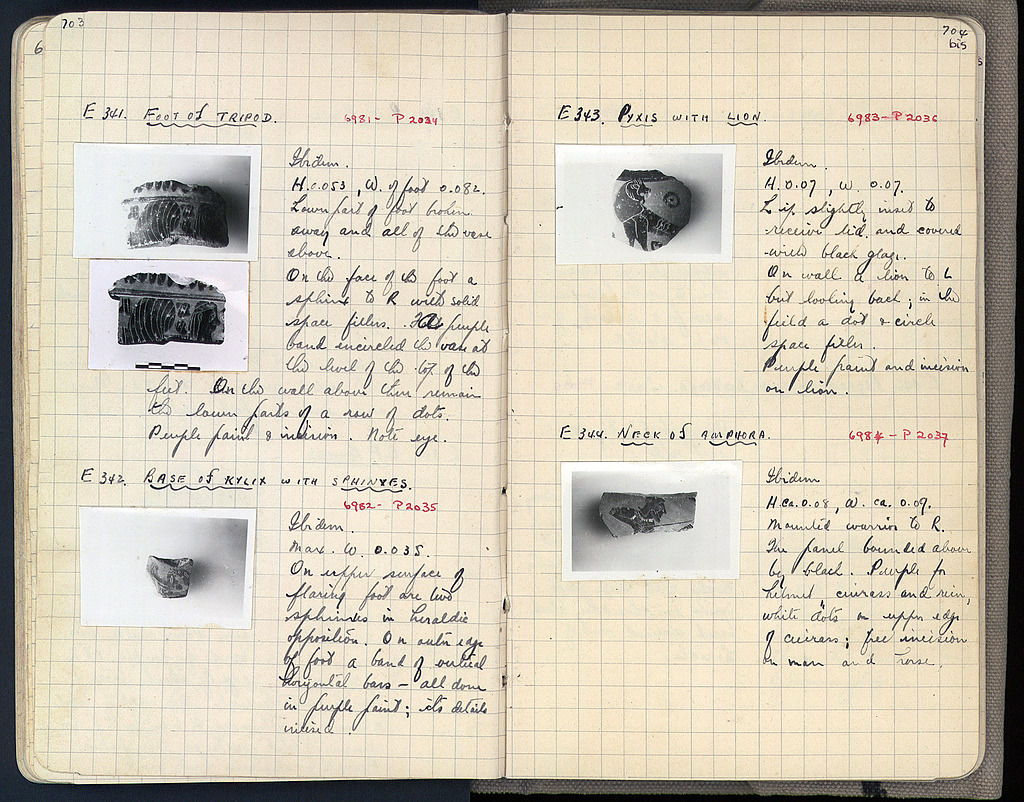 703
6
E 341. FOOT OF TRIPOD.
6981 - P 2034
Ibidem.
H. 0.053, W. of foot 0.082.
Lower part of foot broken
away and all of the vase
above.
On the face of the foot a
sphinx to R with solid
space fillers. A purple
band encircled the vase at
the level of the top of the
feet. On the wall above there remain
the lower parts of a row of dots.
Purple paint & incision. Note eye.
E 342. BASE OF KYLIX WITH SPHINXES.
6982 - P 2035
Ibidem.
Max. W. 0.035.
On upper surface of
flaring foot are two
sphinxes in heraldic
opposition. On outer edge
of foot a band of vertical
horizontal bars - all done
in purple paint; its details
incised.
704
bis
E 343. PYXIS WITH LION.
6983 - P 2036
Ibidem
H. 0.07, W. 0.07.
Lip slightly inset to
receive lid and covered
with black glaze.
On wall a lion to L
but looking back; in the
field a dot & circle
space filler.
Purple paint and incision
on lion.
E 344. NECK OF AMPHORA.
6984 - P 2037
Ibidem
H. ca. 0.08, W. ca. 0.09.
Mounted warrior to R.
The panel bounded above
by black. Purple for
helmet, cuirass and rein,
white dots on upper edge
of cuirass; free incision
on man and horse.